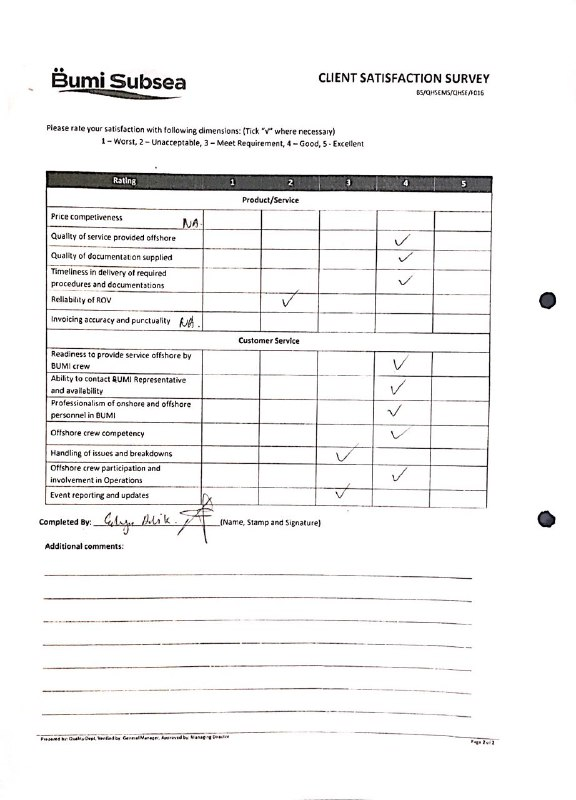 Bumi Subsea
CLIENT SATISFACTION SURVEY
BS/QHSEMS/QHSE/F016
Please rate your satisfaction with following dimensions: (Tick "√" where necessary)
1 – Worst, 2 – Unacceptable, 3 – Meet Requirement, 4 – Good, 5 - Excellent
Rating 1 2 3 4 5
Product/Service
Price competiveness NA.
Quality of service provided offshore ✓
Quality of documentation supplied ✓
Timeliness in delivery of required
procedures and documentations ✓
Reliability of ROV ✓
Invoicing accuracy and punctuality NA.
Customer Service
Readiness to provide service offshore by
BUMI crew ✓
Ability to contact BUMI Representative
and availability ✓
Professionalism of onshore and offshore
personnel in BUMI ✓
Offshore crew competency ✓
Handling of issues and breakdowns ✓
Offshore crew participation and
involvement in Operations ✓
Event reporting and updates ✓
Completed By: (Name, Stamp and Signature)
Additional comments:
Prepared by: Quality Dept, Verified by: General Manager, Approved by: Managing Director
Page 2 of 2